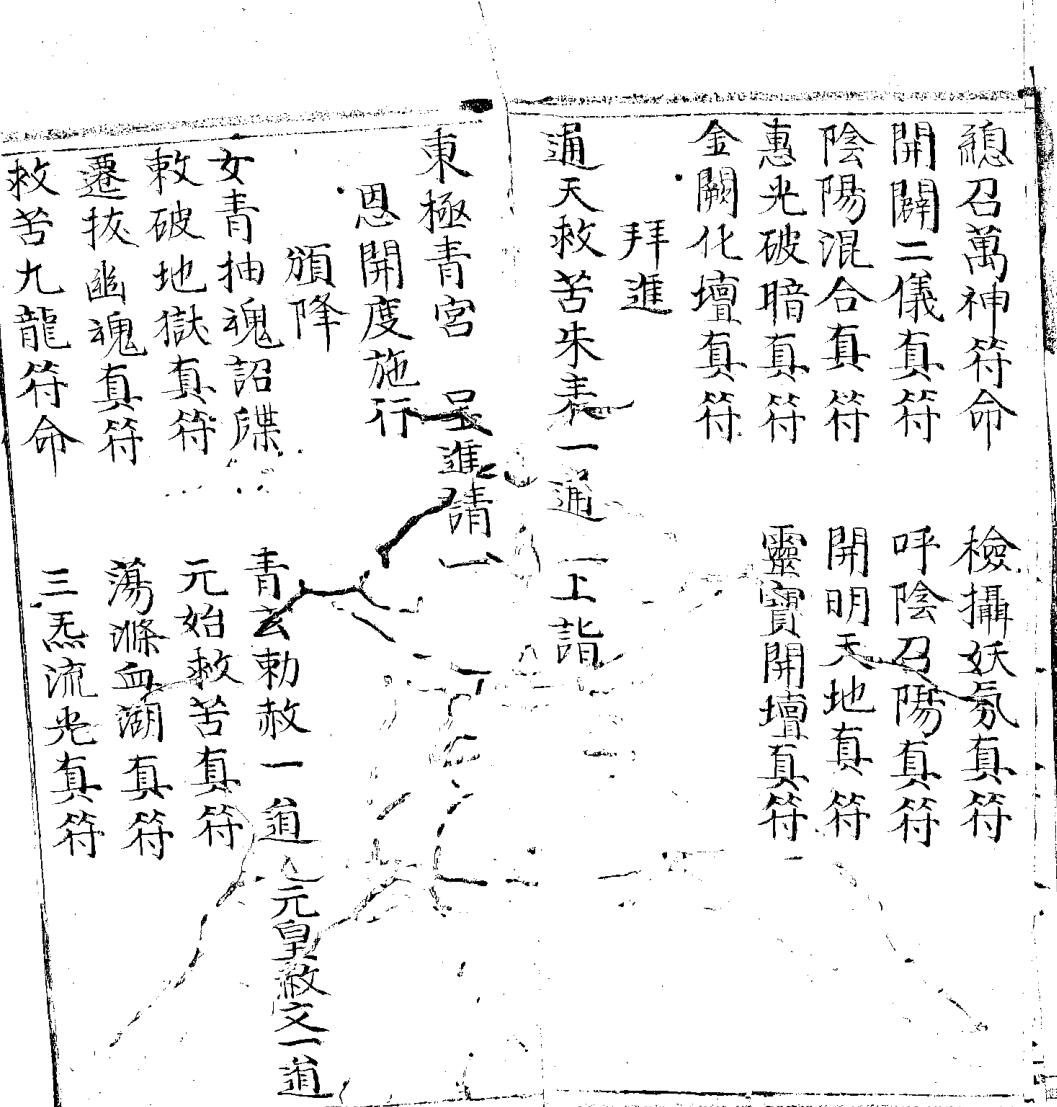 總召萬神符命　檢攝妖氛真符
開闢二儀真符　呼陰召陽真符
陰陽混合真符　開明天地真符
惠光破暗真符　靈寶開壇真符
金闕化壇真符
拜進
通天救苦朱表一通　一上詣
東極青宮　呈進請一
恩開度施行
頒降
女青抽魂詔牒　青玄勅赦一道　元皇赦文一道
敕破地獄真符　元始救苦真符
遷拔幽魂真符　蕩滌血湖真符
救苦九龍符命　三炁流光真符